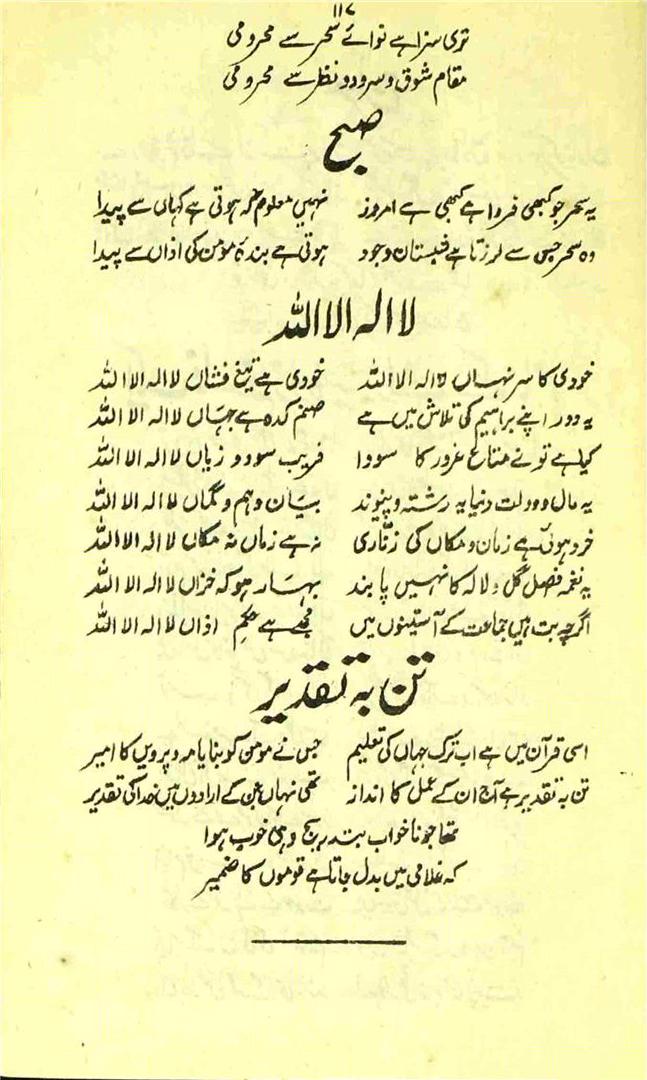 ۱۱۷
تری سزا ہے نوائے سحر سے محرومی
مقام شوق و سرود و نظر سے محرومی
صبح
یہ سحر جو کبھی فردا ہے کبھی ہے امروز نہیں معلوم کہ ہوتی ہے کہاں سے پیدا
وہ سحر جس سے لرزتا ہے شبستان وجود ہوتی ہے بندۂ مومن کی اذاں سے پیدا
لا الہ الا اللہ
خودی کا سر نہاں لا الہ الا اللہ خودی ہے تیغ فشاں لا الہ الا اللہ
یہ دور اپنے براہیم کی تلاش میں ہے صنم کدہ ہے جہاں لا الہ الا اللہ
کیا ہے تو نے متاع غرور کا سودا فریب سود و زیاں لا الہ الا اللہ
یہ مال و دولت دنیا یہ رشتہ و پیوند بیان وہم و گماں لا الہ الا اللہ
خرد ہوئی ہے زمان و مکاں کی زناری نہ ہے زماں نہ مکاں لا الہ الا اللہ
یہ نغمہ فصل گل و لالہ کا نہیں پابند بہار ہو کہ خزاں لا الہ الا اللہ
اگرچہ بت ہیں جماعت کے آستینوں میں مجھے ہے حکم اذاں لا الہ الا اللہ
تن بہ تقدیر
اسی قرآن میں ہے اب ترک جہاں کی تعلیم جس نے مومن کو بنایا مہ و پرویں کا امیر
تن بہ تقدیر ہے آج ان کے عمل کا انداز تھی نہاں جن کے ارادوں میں خدا کی تقدیر
تھا جو ناخواب بتدریج وہی خوب ہوا
کہ غلامی میں بدل جاتا ہے قوموں کا ضمیر